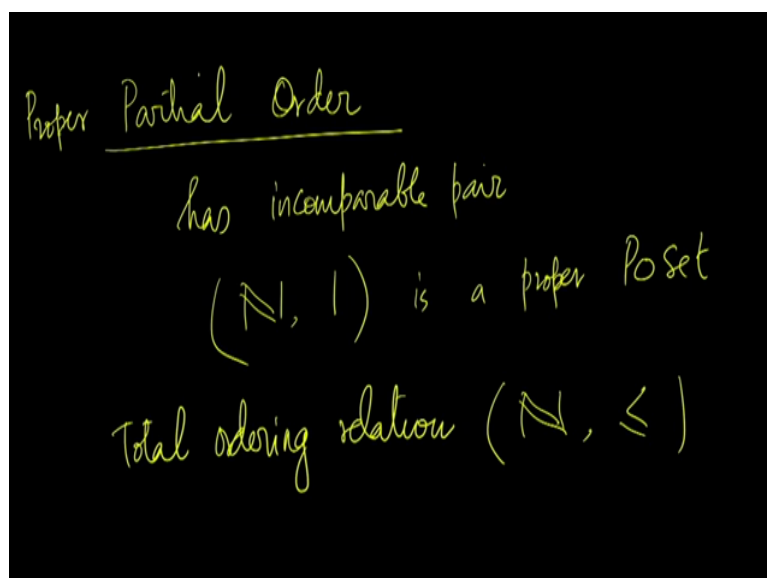 Proper Partial Order
has incomparable pair
(ℕ, |) is a proper Poset
Total ordering relation (ℕ, ≤)